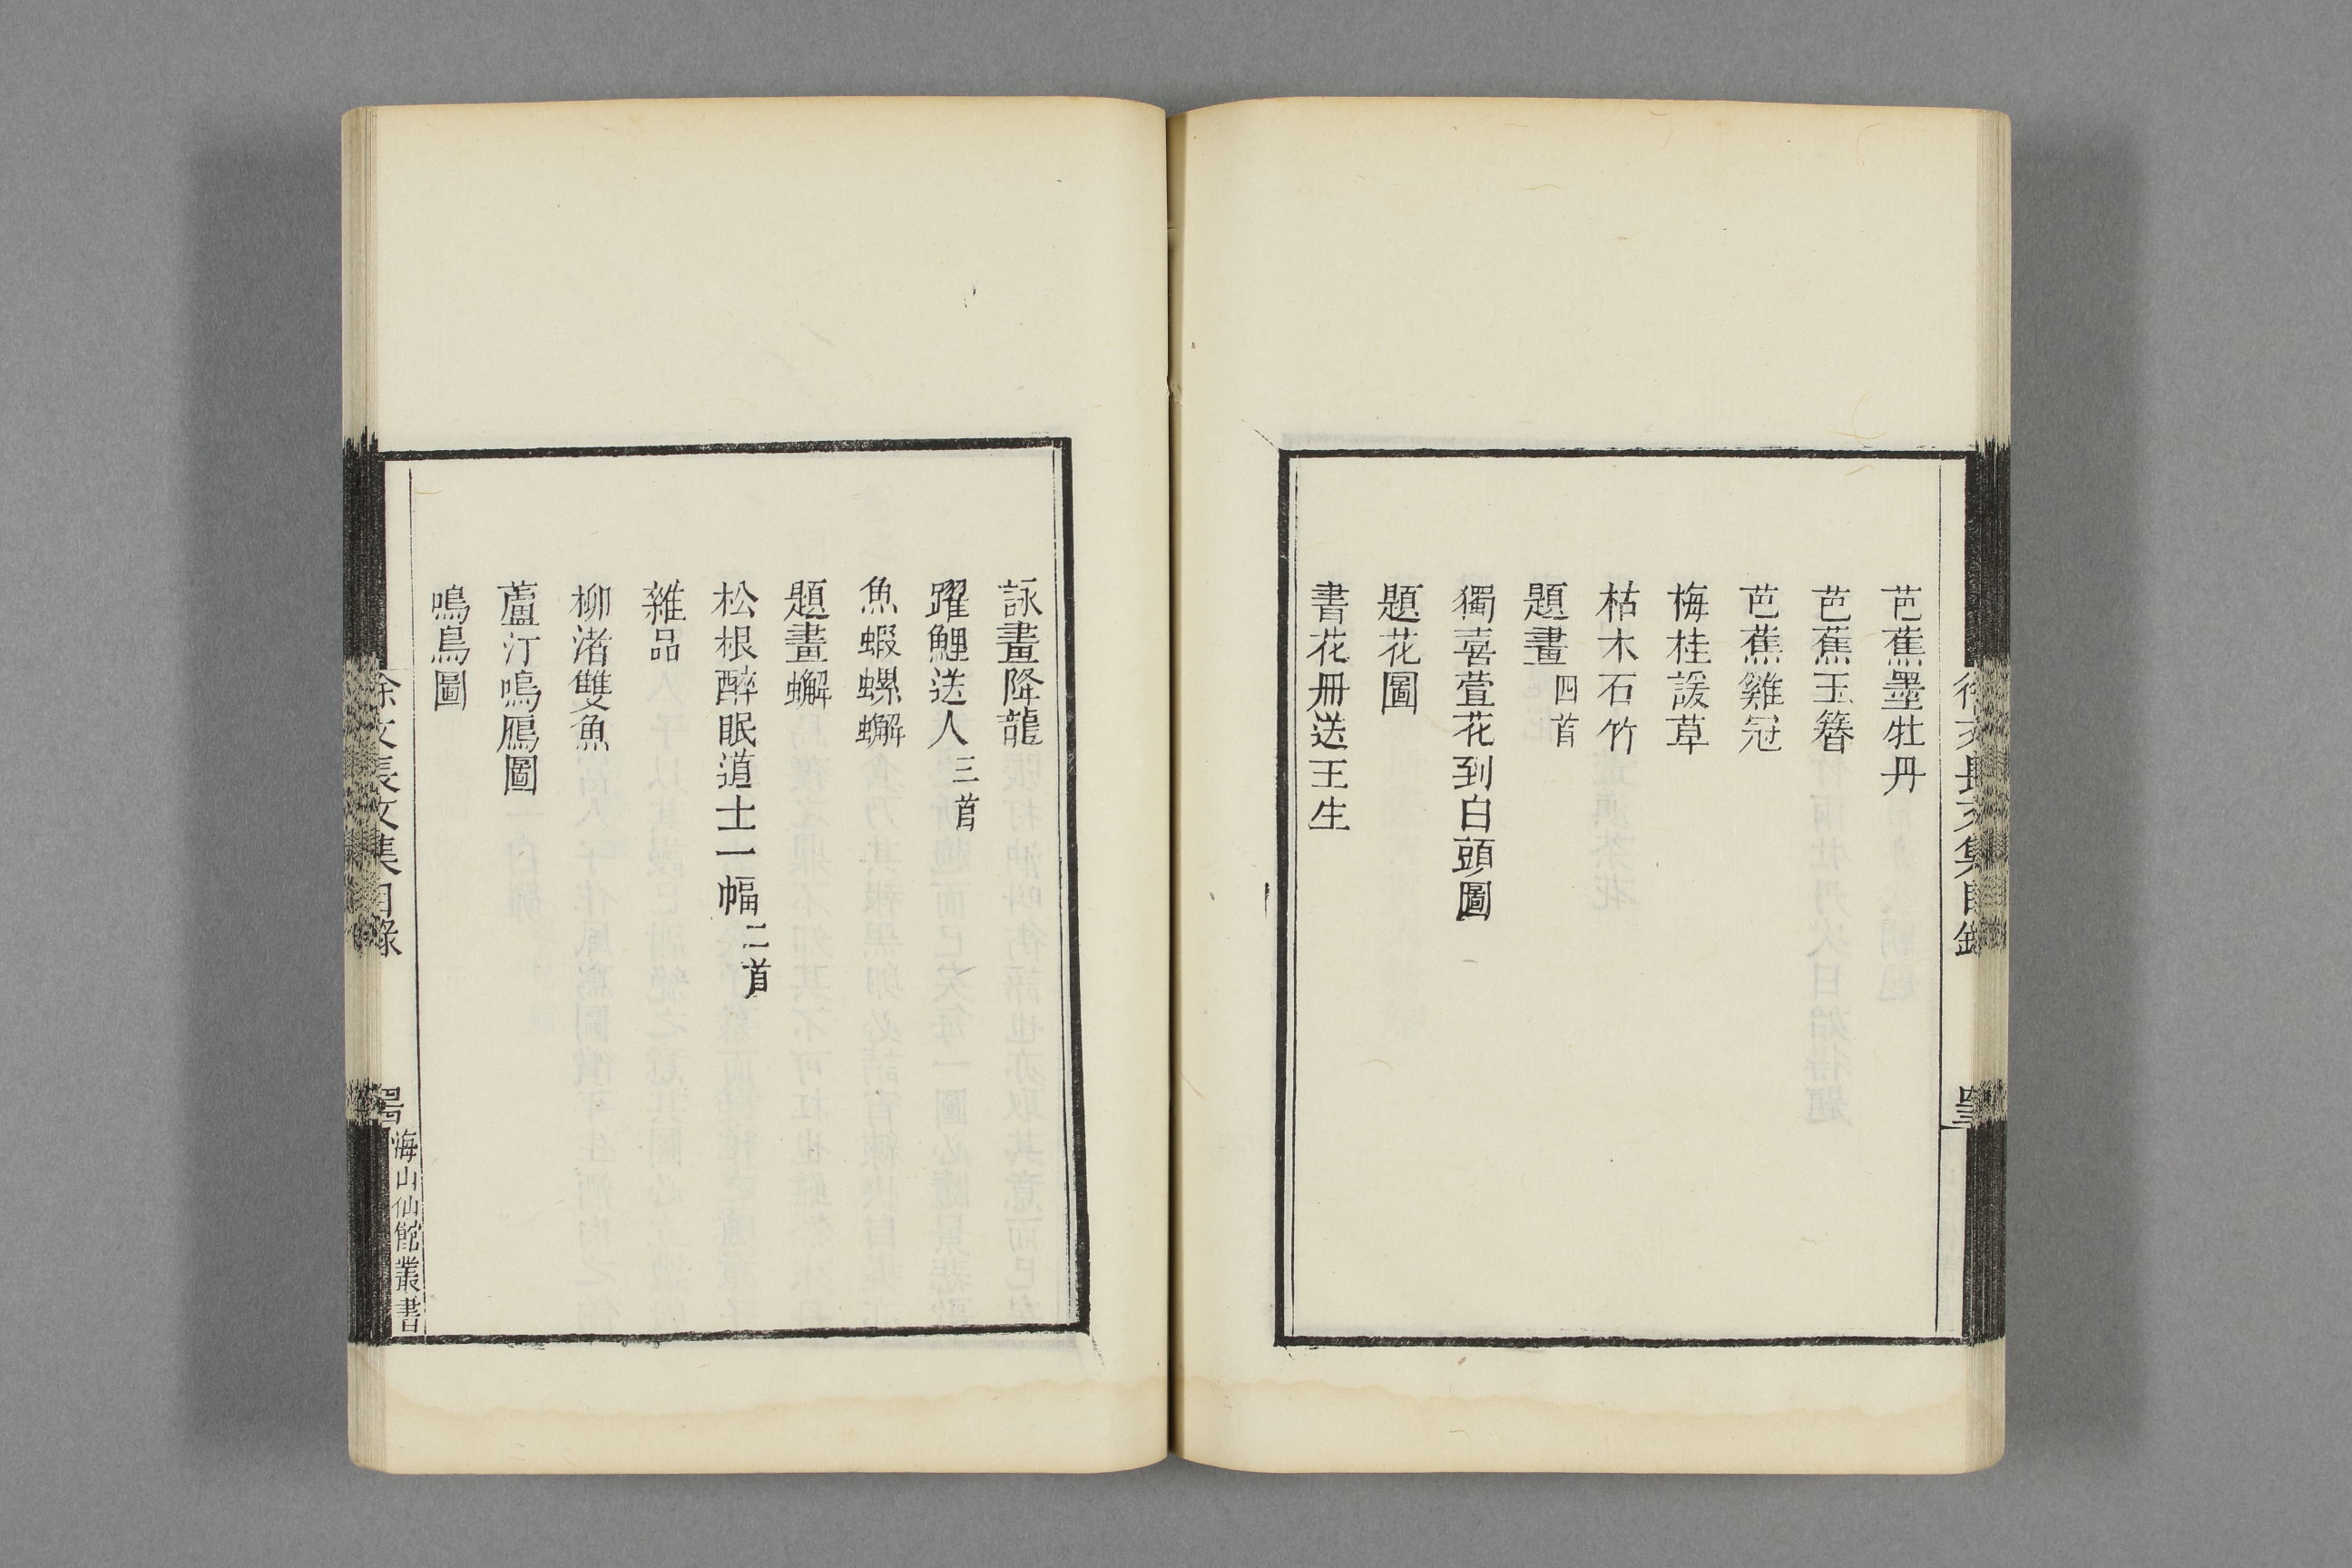 芭蕉墨牡丹
芭蕉玉簪
芭蕉雞冠
梅桂諼草
枯木石竹
題畫四首
獨喜萱花到白頭圖
題花圖
書花冊送王生
徐文長文集目錄
詠畫降龍
躍鯉送人三首
魚蝦螺蠏
題畫蠏
松根醉眠道士一幅二首
雜品
柳渚雙魚
蘆汀鳴鴈圖
鳴鳥圖
徐文長文集目錄
海山仙館叢書